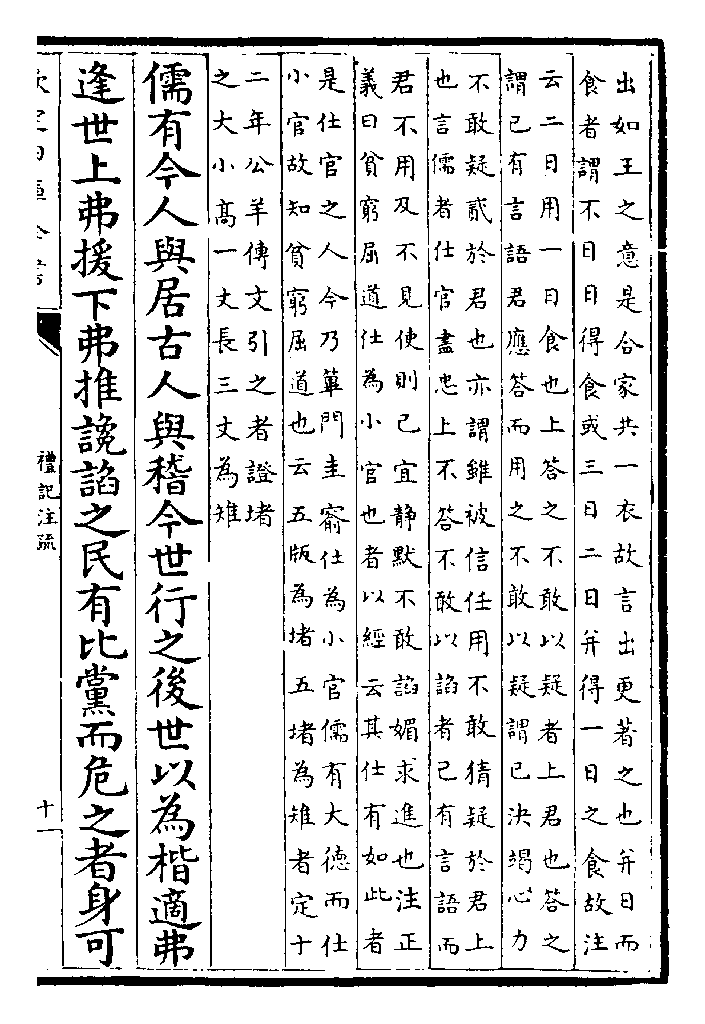 出如王之意是合家共一衣故言出更著之也并日而
食者謂不日日得食或三日二日并得一日之食故注
云二日用一日食也上答之不敢以疑者上君也答之
謂已有言語君應答而用之不敢以疑謂已決竭心力
不敢疑貳於君也亦謂雖被信任用不敢猜疑於君上
也言儒者仕官盡忠上不答不敢以諂者已有言語而
君不用及不見使則已宜静默不敢諂媚求進也注正
義曰貧窮屈道仕為小官也者以經云其仕有如此者
是仕官之人今乃蓽門圭窬仕為小官儒有大德而仕
小官故知貧窮屈道也云五版為堵五堵為雉者定十
二年公羊傳文引之者證堵
之大小髙一丈長三丈為雉
儒有今人與居古人與稽今世行之後世以為楷適弗
逢世上弗援下弗推讒諂之民有比黨而危之者身可
禮記注疏
十一